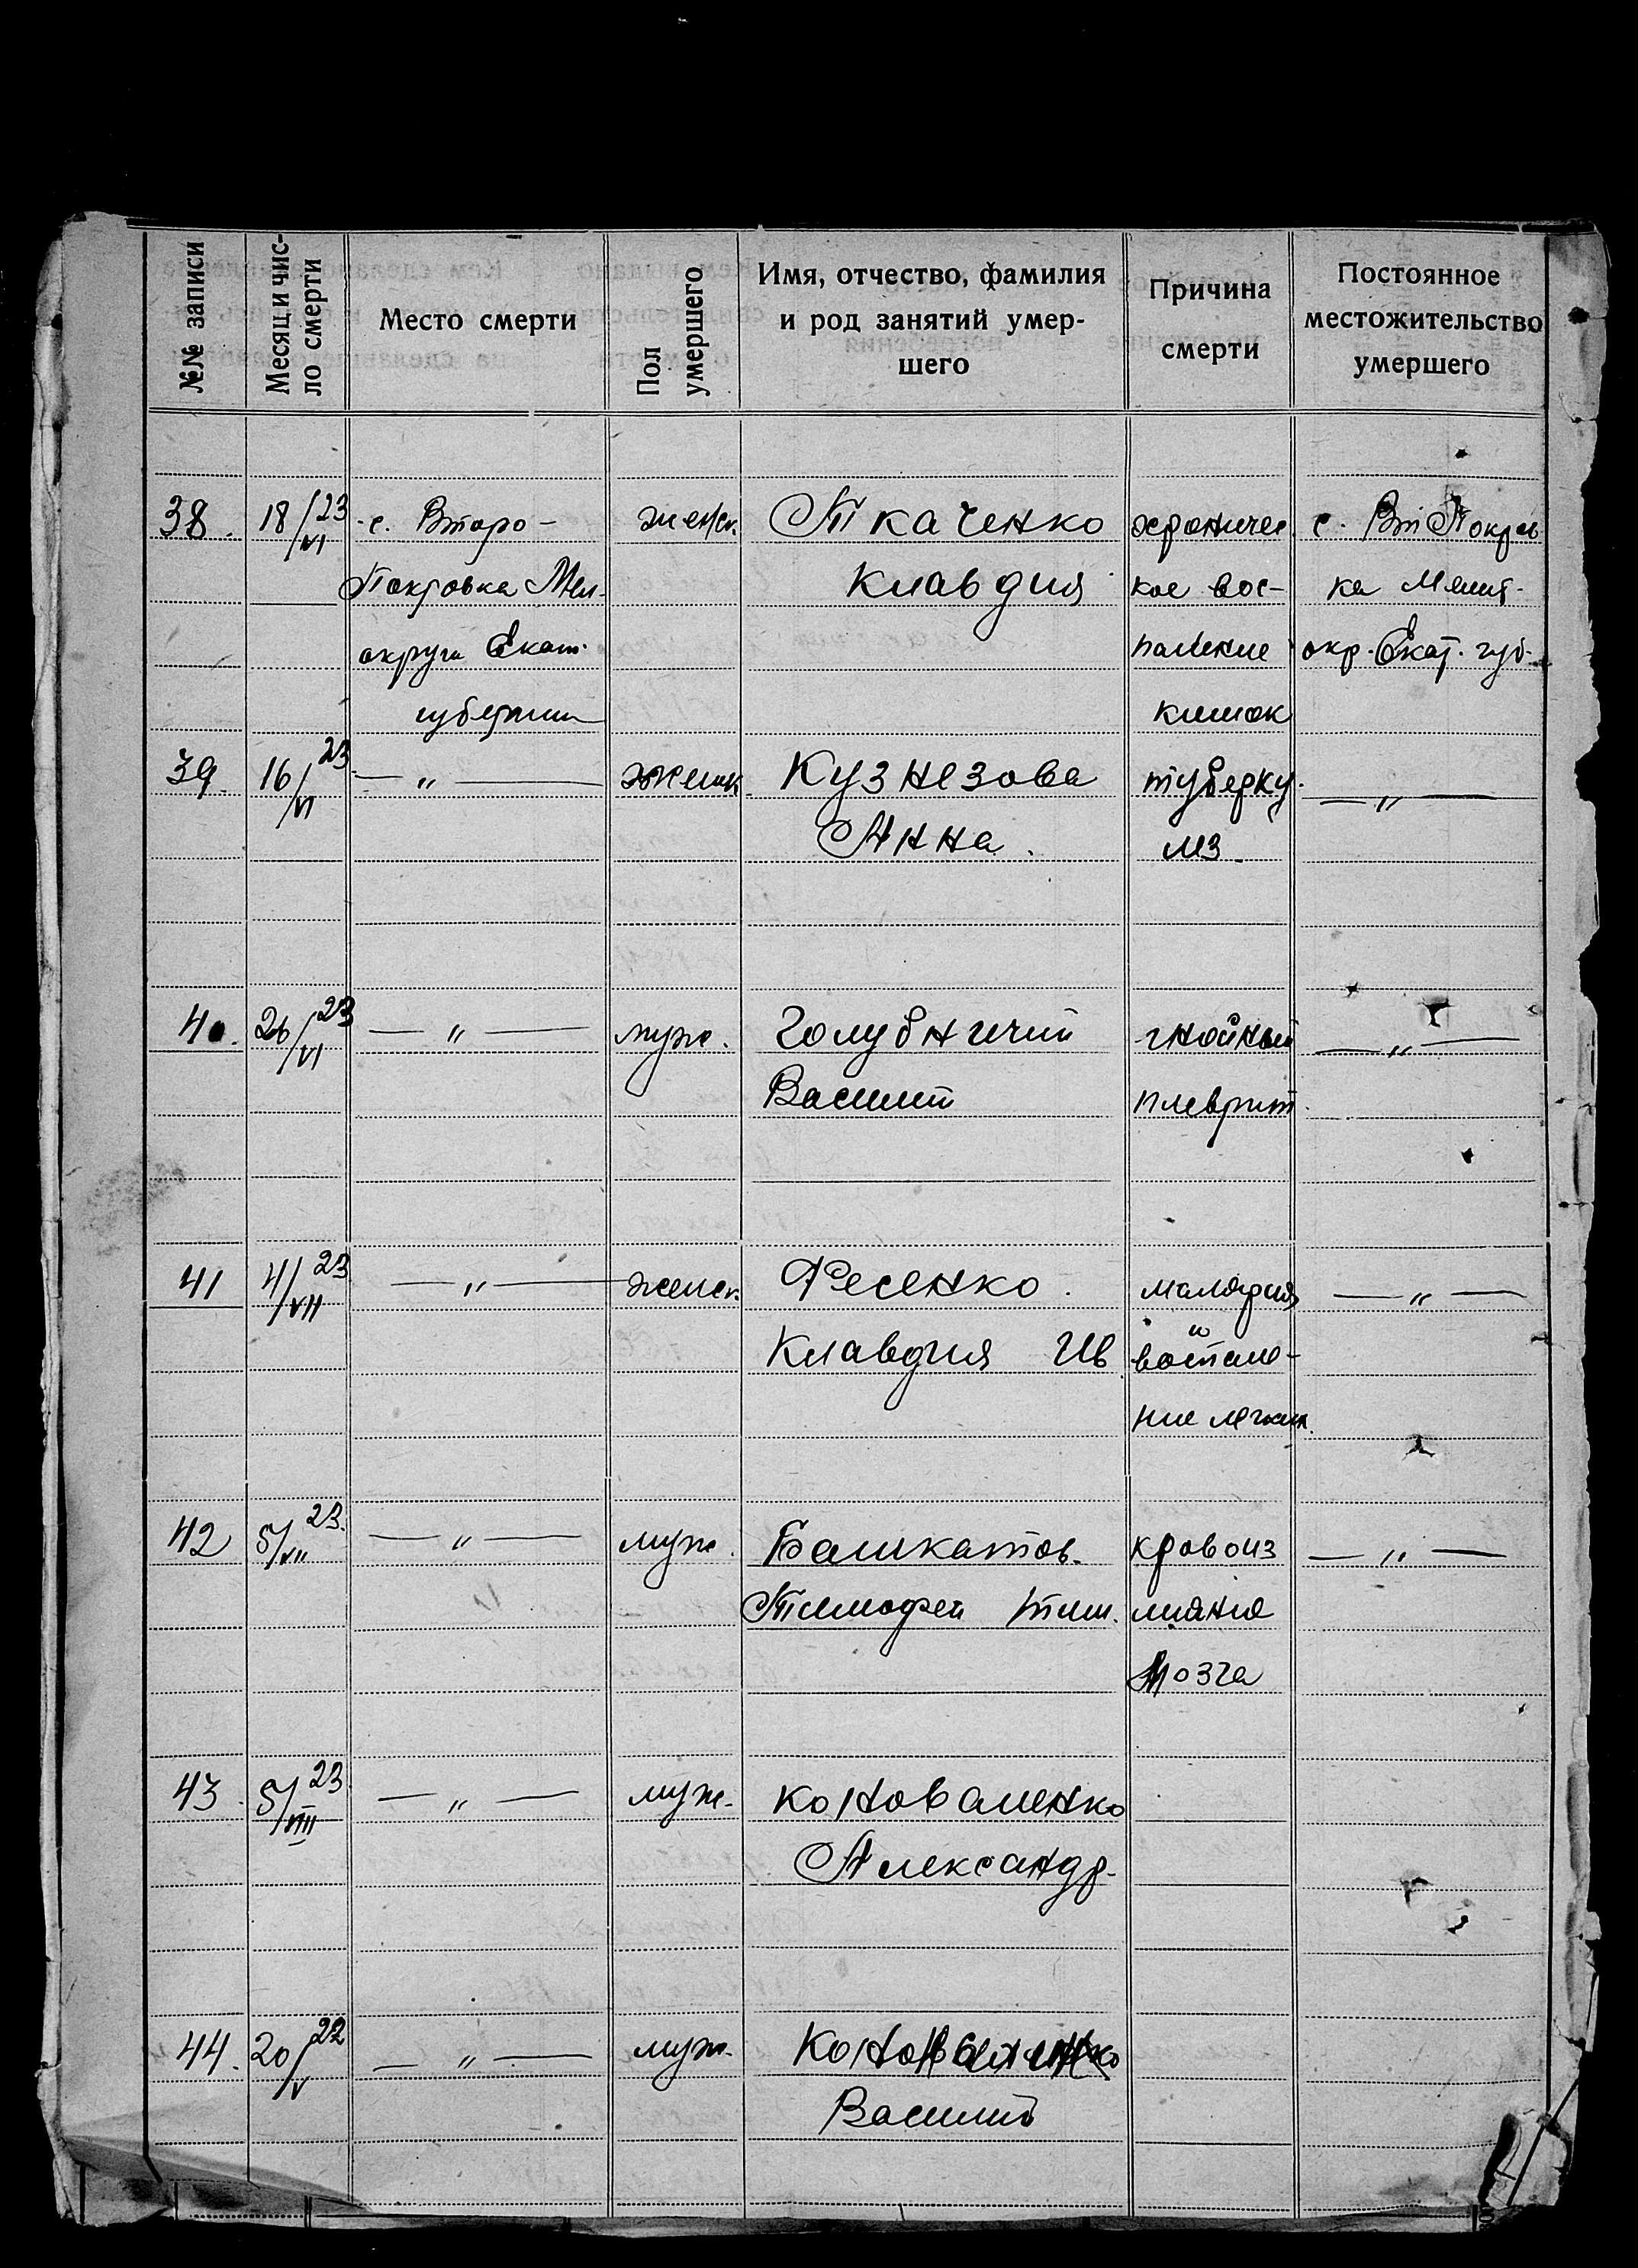 №№ записи
Месяц и чис-
ло смерти
Место смерти
Пол
умершего
Имя, отчество, фамилия
и род занятий умер-
шего
Причина
смерти
Постоянное
местожительство
умершего
38. 18/VI 23 с. Второ- женск. Ткаченко хроничес с. Вт Покров
Покровка Мел. Клавдия кое вос- ка Мелит.
округа Екат. паление окр. Екат. губ.
губернии кишок
39. 16/VI 23 — " — женск. Кузнезова туберку
Анна. лз.
— " —
40. 26/VI 23 — " — муж. Голубничий гнойный — " —
Василий плеврит.
41 4/VII 23 — " — женск. Фесенко. малярия — " —
и
Клавдия Ив воспале-
ние легких.
42 5/VII 23. — " — муж. Башкатов. кровоиз — " —
Тимофей Тим. лияние
мозга
43. 5/VIII 23 — " — муж. Коноваленко
Александр.
44. 20/V 22 — " — муж. Коноваленко
Василий